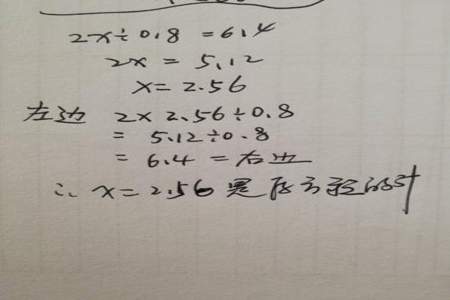 2x÷0.8 =6.4
2x = 5.12
x=2.56
左边 2×2.56÷0.8
= 5.12÷0.8
= 6.4 =右边
∴ x=2.56是原方程的叶